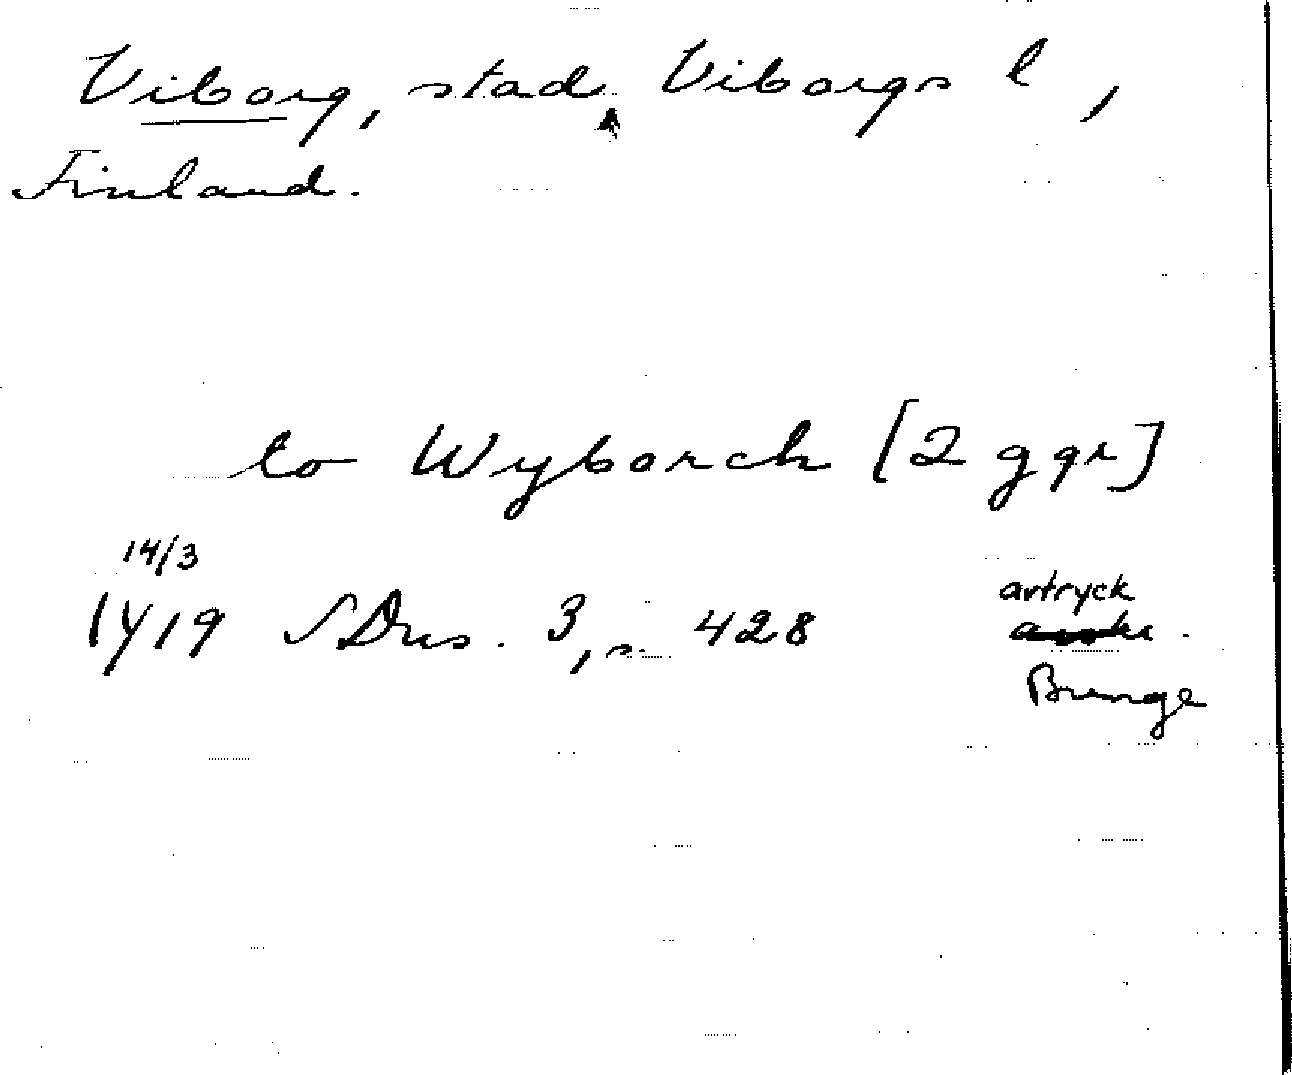 Viborg, stad, Viborgs l,
Finland.
to Wyborch [2 ggr]
14/3
1419 SDns. 3, s. 428
avtryck
Bunge